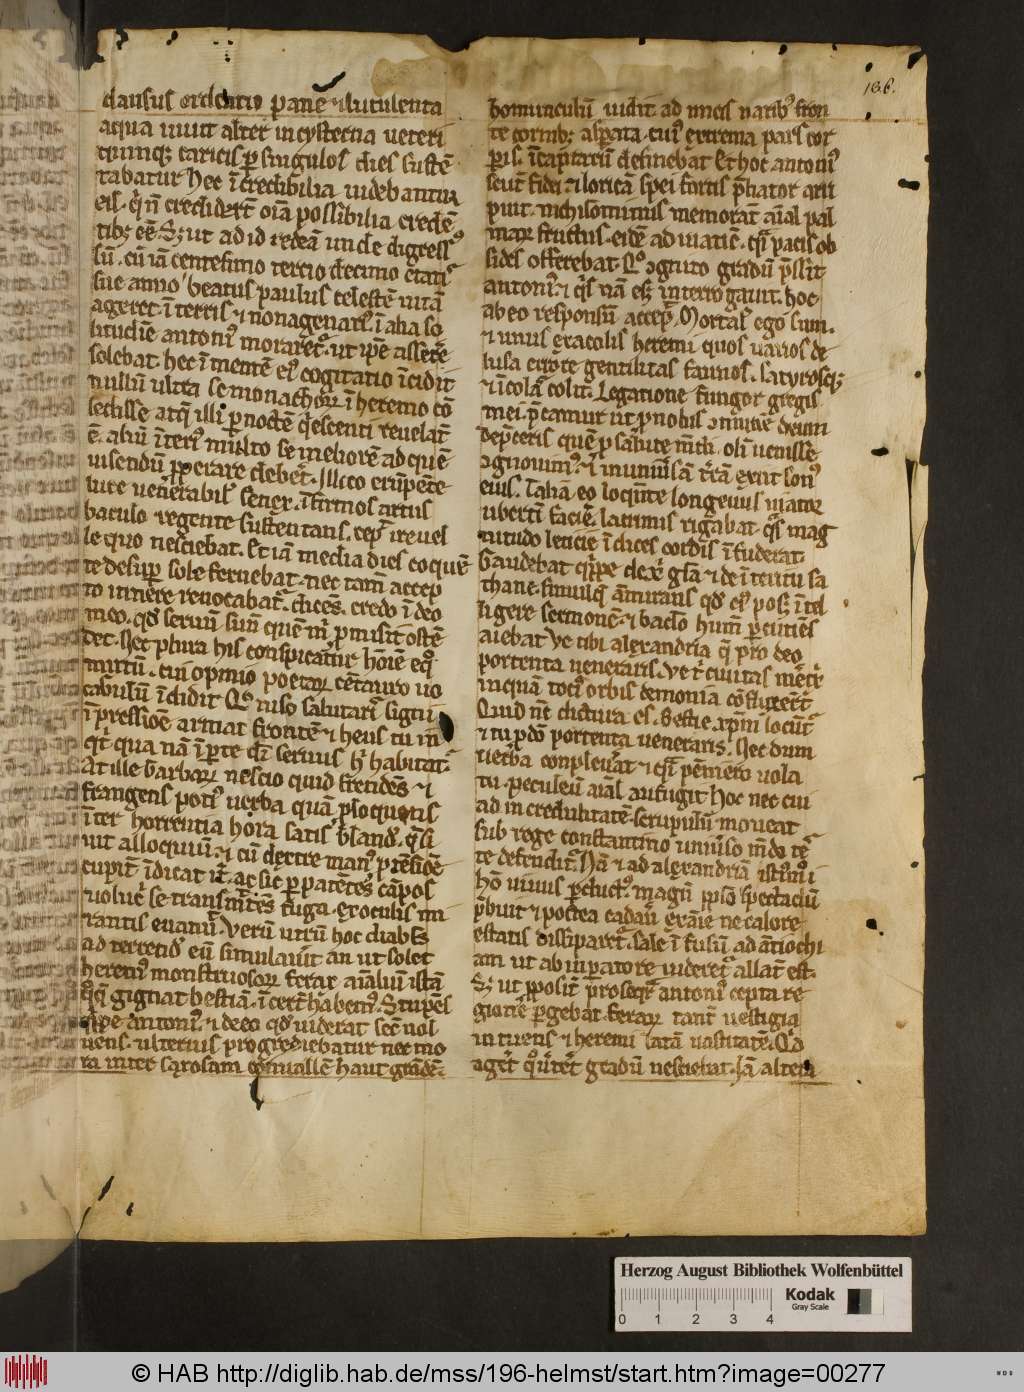 136.
clausus ordeatio pane ⁊ lutulenta
aqua uiuit alter in cysterna ueteri
quinqꝫ caricis ꝑ singulos dies sustē
tabatur hec īcredibilia uidebantur
eis. qͥ nō crediderīt oīa possibilia credē
tibꝫ eē. Sꝫ ut ad id redeā unde digressꝰ
sū. cū iā centesimo tercio decimo etatis
sue anno beatus paulus celestē uitā
ageret ī terris ⁊ nonagenariꝰ ī alia so
litudīe antoniꝰ moraret᷑. ut ipe asserē
solebat. hec ī mentē eiꝰ cogitatio īcidit
nullū ultra se monachoꝝ ī heremo cō
sedisse atqꝫ illi ꝑ noctē qͥescenti reuelatū
ē. aliū īteriꝰ multo se meliorē ad quē
uisendū ꝓperare deberet. Illico erūpēte
luce uenerabilis senex. īfirmos artus
baculo regente sustentans. cepit ire uel
le quo nesciebat. Et iā media dies coquē
te desuꝑ sole feruebat. nec tamē accep
to itinere reuocabat᷑. dicēs. credo ī deo
meo. qd seruū suū quē mͥ ꝓmisit ostē
det. Nec plura his conspicatur hoīē eqͦ
mixtū. cui opinio poetaꝝ cētauro uo
cabulū īdidit Qͦ uiso salutaris signi
īpressiōe armat frontē ⁊ heus tu in
qͥt qua nā ī parte dei seruus hͥ habitat.
At ille barbarꝝ nescio quid frendēs ⁊
frangens potiꝰ uerba quā ꝓloquens
īter horrentia hora satis bland. qͣsi
uit alloquiū. ⁊ cū dextre manꝰ ꝓtēsiōē
cupitū īdicat iter. ac sic ꝑ patētes cāpos
uolucri se trāsmittēs fuga. ex oculis mi
rantis euanuit. Verū utrū hoc diabolꝰ
ad terrendū eū simulauit an ut solet
heremꝰ monstruosoꝝ feraꝝ aīaliū istā
qͦqꝫ gignat bestiā. īcertū habemꝰ. Stupēs
itaqꝫ antoniꝰ. ⁊ de eo qd uiderat secū uol
uens. ulterius progrediebatur nec mo
ra inter saxosam conuallē haut grādē
homunculū uidit ad uncis naribꝰ fron
te cornibꝫ asperata. cuiꝰ extrema pars cor
poris. ī capraruū definebat Et hoc antoniꝰ
scutū fidei. ⁊ loricā spei fortis p̄liator arri
puit. nichilominus memoratū aīal pal
marū fructus. eidē ad uiaticū. qͣsi pacis ob
sides offerebat. Qͦ ↄgnito gradū p̄ssit
antoniꝰ ⁊ qͥs nā esset interrogauit. hoc
ab eo responsū accepit. Mortalis ego sum.
⁊ unus ex acolis heremi quos uarios de
lusa errore gentilitas faunos. satyrosqꝫ
⁊ īcolas colit. Legatione fungor gregis
mei. p̄camur ut pro nobis ↄmunē deum
dep̄ceris quē ꝓ salute mūdi. olī uenisse
ↄgnouimꝰ. ⁊ ī uniuersā t̄rā exiit sonꝰ
eius. Talia eo loquēte longeuus uiator
ubertī faciē. lacrimis rigabat. qͣs mag
nitudo leticie īdices cordis īfuderat.
Gaudebat quippe de xp̄i gl̄a ⁊ de īteritu sa
thane. simulqꝫ āmirans qd eiꝰ posset ītel
ligere sermonē. ⁊ baclo humū percutiēs
aiebat Ve tibi alexandria q̄ pro deo
portenta ueneraris. Ve t̄ ciuitas meretrix
in quam tociꝰ orbis demonia cōfluxerūt
Quid nūc dictura es. bestie xp̄m locūt᷑
⁊ tu ꝓ deo portenta ueneraris. Nec dum
uerba conpleuerat ⁊ qͣsi pēnigero uola
tu. peculeū aīal aufugit Hoc nec cui
ad incredulitatē. scrupulū moueat
sub rege constantino uniuerso mūdo te
te defenditur. Nā ⁊ ad alexandriā istiꝰmōi
hō uiuus perductꝰ. magnū ꝓpło spectaculū
p̄buit ⁊ postea cadauer exanīe ne calore
estatis dissiparet᷑. sale īfusū ad antiochi
am ut ab inperatore uideret᷑ allatū est.
Sꝫ ut ꝓpositū prosequar antoniꝰ cepta re
gionē pergebat. feraꝝ tantū uestigia
intuens ⁊ heremi latā uastitatē. Qͥd
ageret qͦ ūteret gradū nesciebat. Iā altera
Herzog August Bibliothek Wolfenbüttel
Kodak
Gray Scale
0 1 2 3 4
© HAB http://diglib.hab.de/mss/196-helmst/start.htm?image=00277